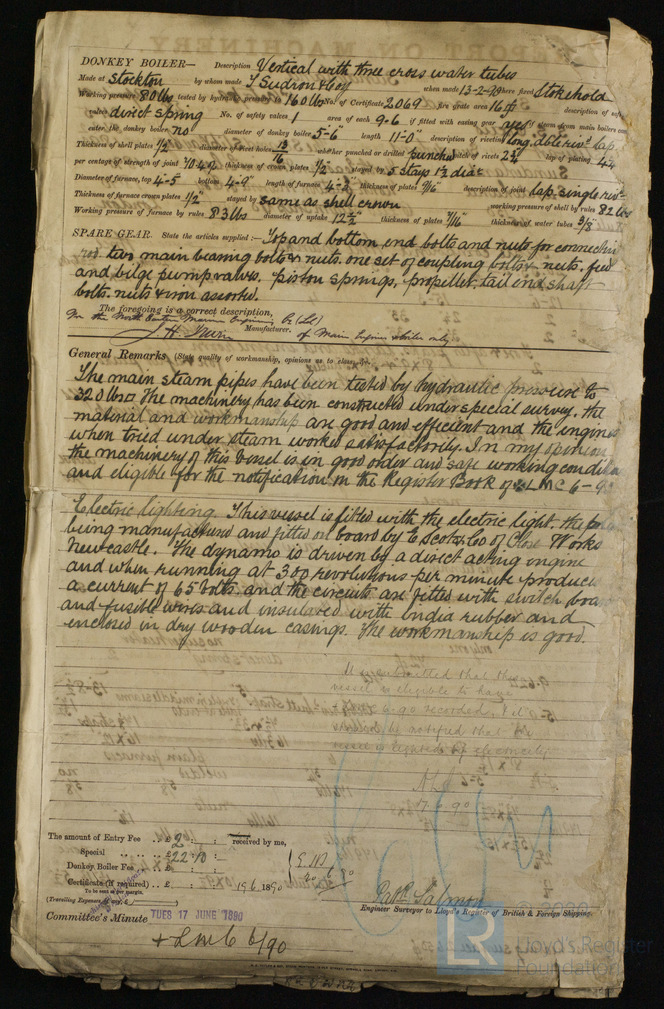 DONKEY BOILER— Description Vertical with three cross water tubes
Made at Stockton by whom made T Sudron & Coy when made 13-2-90 where fixed Stokehold
Working pressure 80 lbs tested by hydraulic pressure to 160 lbs No. of Certificate 2069 fire grate area 16 description of safety
valves direct spring No. of safety valves 1 area of each 9-6 if fitted with easing gear yes if steam from main boilers can
enter the donkey boiler no diameter of donkey boiler 5-6" length 11-0" description of riveting long. dble rivd lap
Thickness of shell plates 1/2" diameter of rivet holes 13/16 whether punched or drilled punched pitch of rivets lap of plating 4-4
per centage of strength of joint 70.42 thickness of crown plates 1/2" stayed by 5 stays 1½ dia
Diameter of furnace, top 4-5 bottom 4-9" length of furnace thickness of plates 9/16 description of joint lap single riv
Thickness of furnace crown plates 1/2" stayed by same as shell crown working pressure of shell by rules 82 lbs
Working pressure of furnace by rules 83 lbs diameter of uptake 12½" thickness of plates 7/16 thickness of water tubes 3/8
SPARE GEAR. State the articles supplied:— Top and bottom end bolts and nuts for connecting
rod, two main bearing bolts & nuts, one set of coupling bolts & nuts, feed
and bilge pump valves, piston springs, propeller, tail end shaft
bolts, nuts & iron assorted.
The foregoing is a correct description,
For the North Eastern Marine Engineering Co (Ld)
Manufacturer. of Main Engines & boiler only
General Remarks (State quality of workmanship, opinions as to class, &c.
The main steam pipes have been tested by hydraulic pressure to
320 lbs The machinery has been constructed under special survey. the
material and workmanship are good and efficient and the engines
when tried under steam worked satisfactorily. In my opinion
the machinery of this vessel is in good order and safe working condition
and eligible for the notification in the Register Book of + LMC 6-90
Electric lighting This vessel is fitted with the electric light. the
being manufactured and fitted on board by E Scott & Co of Close Works
Newcastle. The dynamo is driven by a direct acting engine
and when running at 300 revolutions per minute produces
a current of 65 volts and the circuits are fitted with switch boa
and fusible wires and insulated with India rubber and
enclosed in dry wooden casings. The workmanship is good
It is submitted that this
vessel is eligible to have
+ LMC 6.90 recorded,
notified that the
vessel is lighted by electricity
17.6.90
The amount of Entry Fee .. £ 2 : : received by me,
Special .. .. £ 22 : 10 :
Donkey Boiler Fee .. £ : :
Certificate (if required) .. £ : : 19.6.1890
To be sent as per margin.
(Travelling Expenses, if any, £ )
Salmon
Engineer Surveyor to Lloyd's Register of British & Foreign Shipping.
Committee's Minute TUES 17 JUNE 1890
+ LMC 6/90
© 2020
LR Lloyd's Register
Foundation